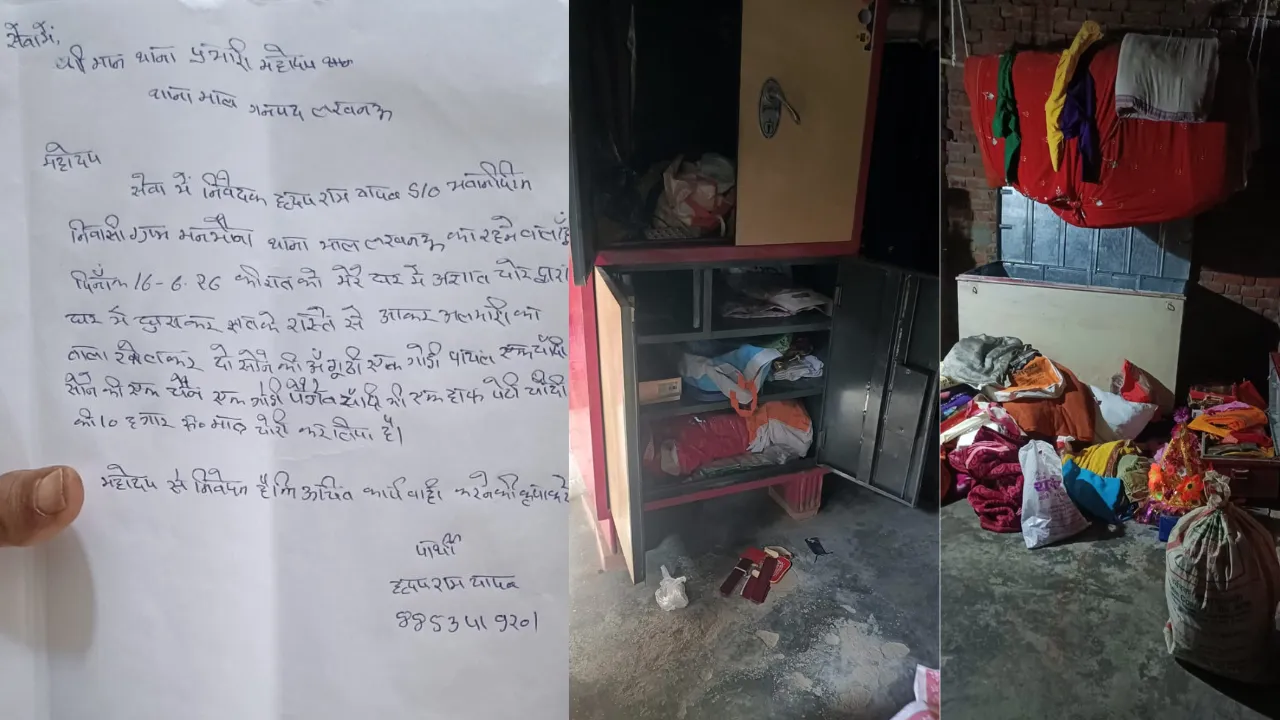 सेवा में,
श्री मान थाना प्रभारी महोदय
थाना माल जनपद लखनऊ
महोदय
सेवा में निवेदक हृदय राम यादव S/O भवानीदीन
निवासी ग्राम थाना माल लखनऊ का रहने वाला हूँ
दिनाँक 16-6-26 की रात को मेरे घर में अज्ञात चोर द्वारा
घर में घुसकर छत के रास्ते से आकर अलमारी का
ताला खोलकर दो सोने की अँगूठी एक जोड़ी पायल एक चाँदी
सोने की एक चैन एक जोड़ी चाँदी की एक हाफ पेटी चाँदी
की 10 हजार रू० माल चोरी कर लिया है।
महोदय से निवेदन है कि उचित कार्यवाही करने की कृपा करे
प्रार्थी
हृदय राम यादव